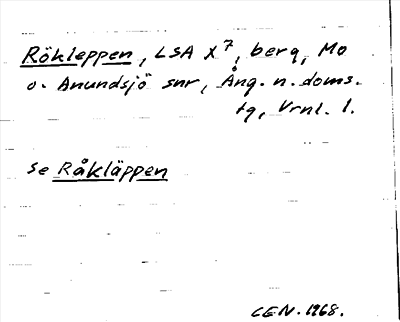 Rökleppen, LSA X⁷, berg, Mo
o. Anundsjö snr, Ång. n. doms.
tg, Vrnl. 1.
se Råkläppen
CEN. 1968.